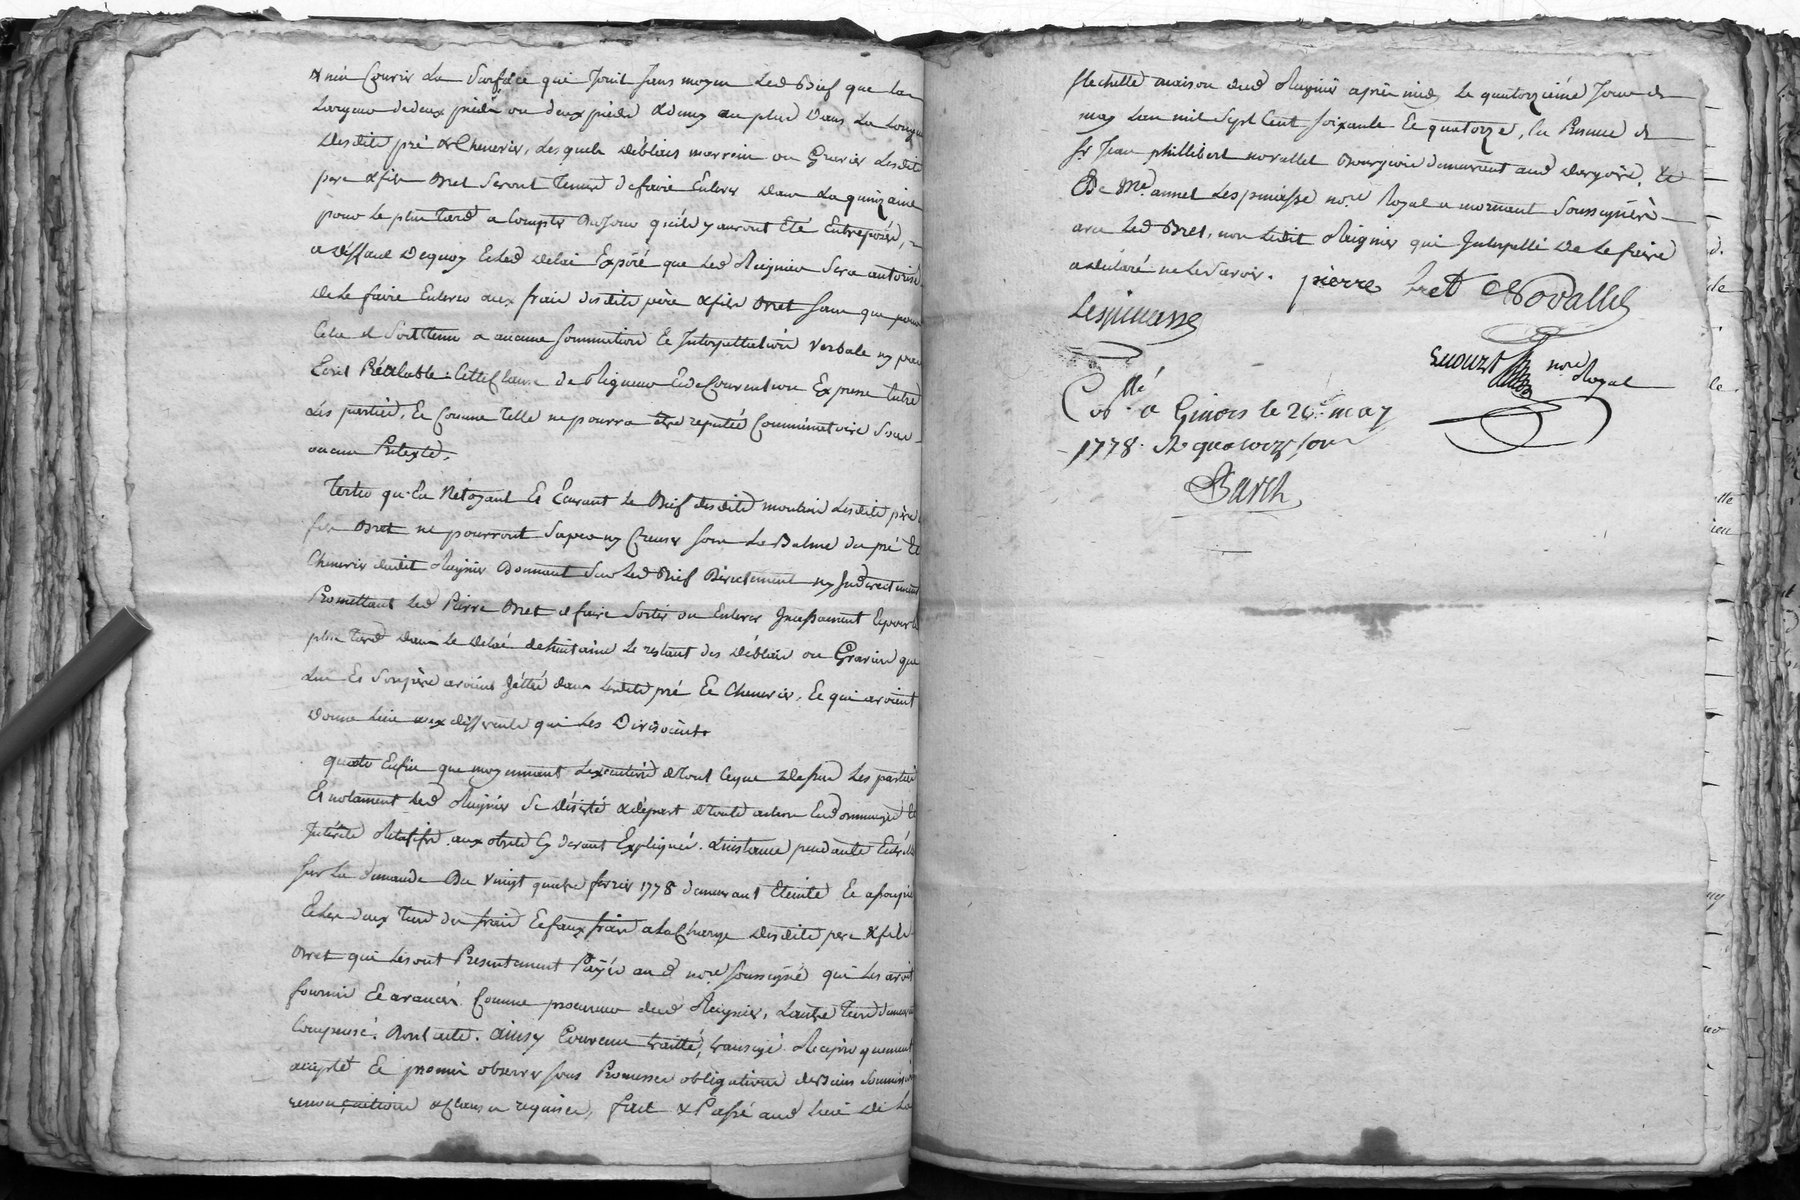 & n'en Couvrir La Surface qui Joint sans moyen Led Bief que La
Largeur de deux pieds ou deux pieds & demy au plus Dans La Longueur
Desdits pré & Chenevier, Lesquels déblais marrein ou Gravier Lesdits
pere & fils Bret Seront Tenus de faire Enlever Dans La quinzaine
pour Le plus Tard a Compter Du Jour qu'ils y auront Eté Entreposés,
a Deffaut Dequoy Et Led Delai Expiré que Led Reignier Sera autorisé
De Le faire Enlever aux frais desdits père & fils Bret sans que pour
Cela il Soit Tenu a aucune Sommation Et Interpellation Verbale ny par
Ecrit Préalable. Cette Clause de Rigueur Et de Convention Expresse Entre
Les parties, Et Comme Telle ne pourra être reputée Comminatoire Sous
aucun Pretexte.
Tertio qu'En Nétoyant Et Ecurant Le Bief desdits moulins Lesdits père &
fils Bret ne pourront Saper ny Creuser Sous La Balme du pré Et
Chenevier dudit Reignier Donnant Sur Led Bief Directement ny Indirectement
Promettant Led Pierre Bret de faire Sortir ou Enlever Incessament Et pour le
plus Tard dans Le Delai de huitaine Le restant des Déblais ou Graviers que
Lui Et Son père avoient Jétté dans Lesdits pré Et Chenevier, Et qui avoient
Donné Lieu aux differents qui Les Divisoient.
quarto Enfin que moyennant L'exécution de Tout Ceque Dessus Les parties
Et notament Led Reignier Se désiste & départ de Toute action En dommages Et
Intérêts Relatifs aux objets Cy devant Expliqués. L'instance pendante Entr'elles
Sur La demande Du Vingt quatre fevrier 1778 demeurant Eteinte Et assoupie
Et Les deux Tiers des frais Et faux frais a La Charge Desdits pere & fils
Bret qui Les ont Presentement Payés aud nore Soussigné qui Les avoit
fourni Et avancés Comme procureur dud Reignier, L'autre Tiers demeurant
Compensé. Dont acte. ainsy Convenu traitté, transigé Réciproquement
accepté Et promis observer sous Promesses obligations de Biens Soumissions
renonciations & Clauses requises, fait & Passé aud Lieu de La
flechette maison dud Reignier après midy Le quatorzième Jour de
may L'an mil Sept Cent soixante Et quatorze, En Presence de
Sr Jean phillibert novallet Bourgeois demeurant aud dargoire, Et
De Me annet Lespinasse nore Royal a mornant Soussignés
avec Led Bret, non Ledit Reignier qui Interpellé De Le faire
a déclaré ne Le Savoir. pierre bret Novallet
Lespinasse
nore Royal
Collé a Givors le 26 may
1778. Rx quatorze sous
Barth